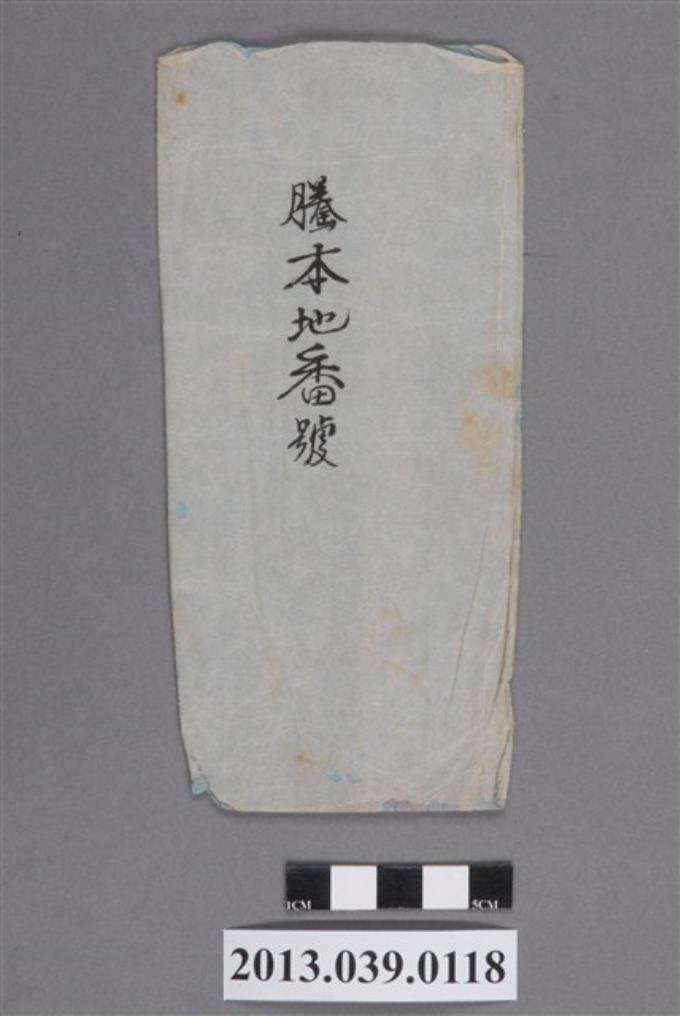 螣本地番號
1CM
5CM
2013.039.0118